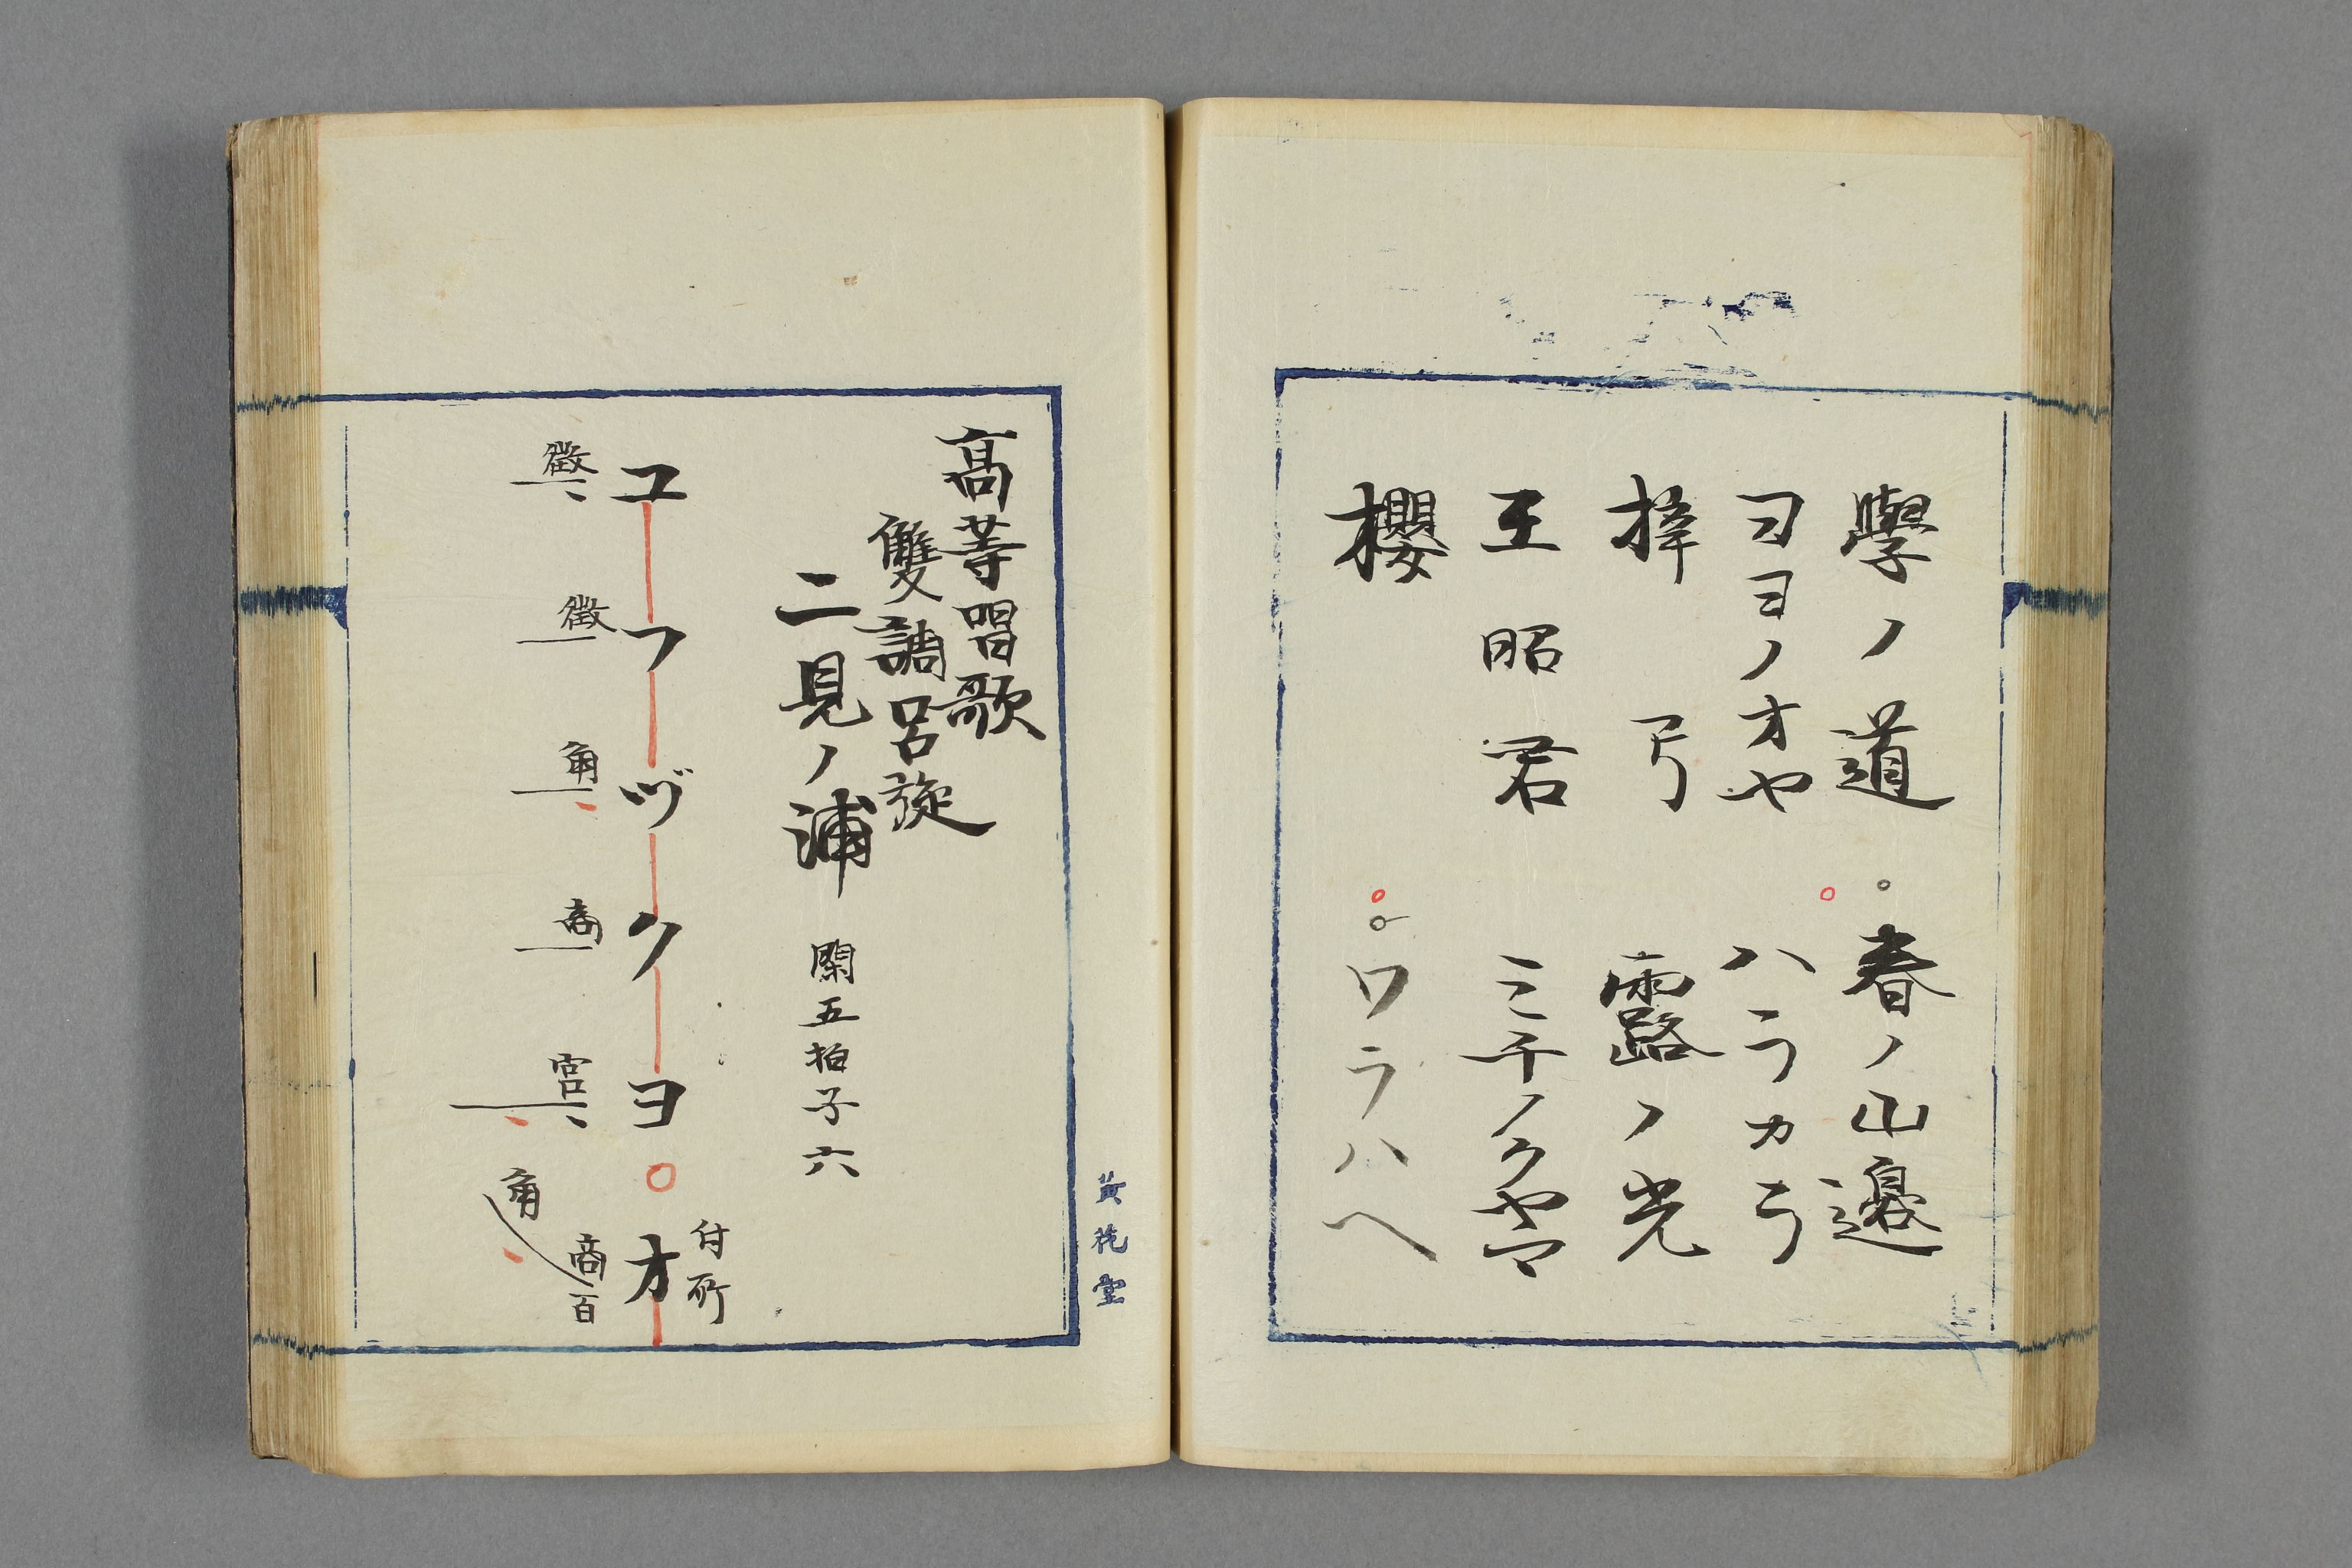 學ノ道　春ノ山邊
ヨヨノオヤ　ハラカラ
梓弓　露ノ光
王昭君　ミチノクヤマ
櫻　ワラハヘ
高等唱歌
雙調呂旋
二見ノ浦　闋五拍子六
付所
ユフヅクヨオ
徴徴角商宮角商百
黄花堂